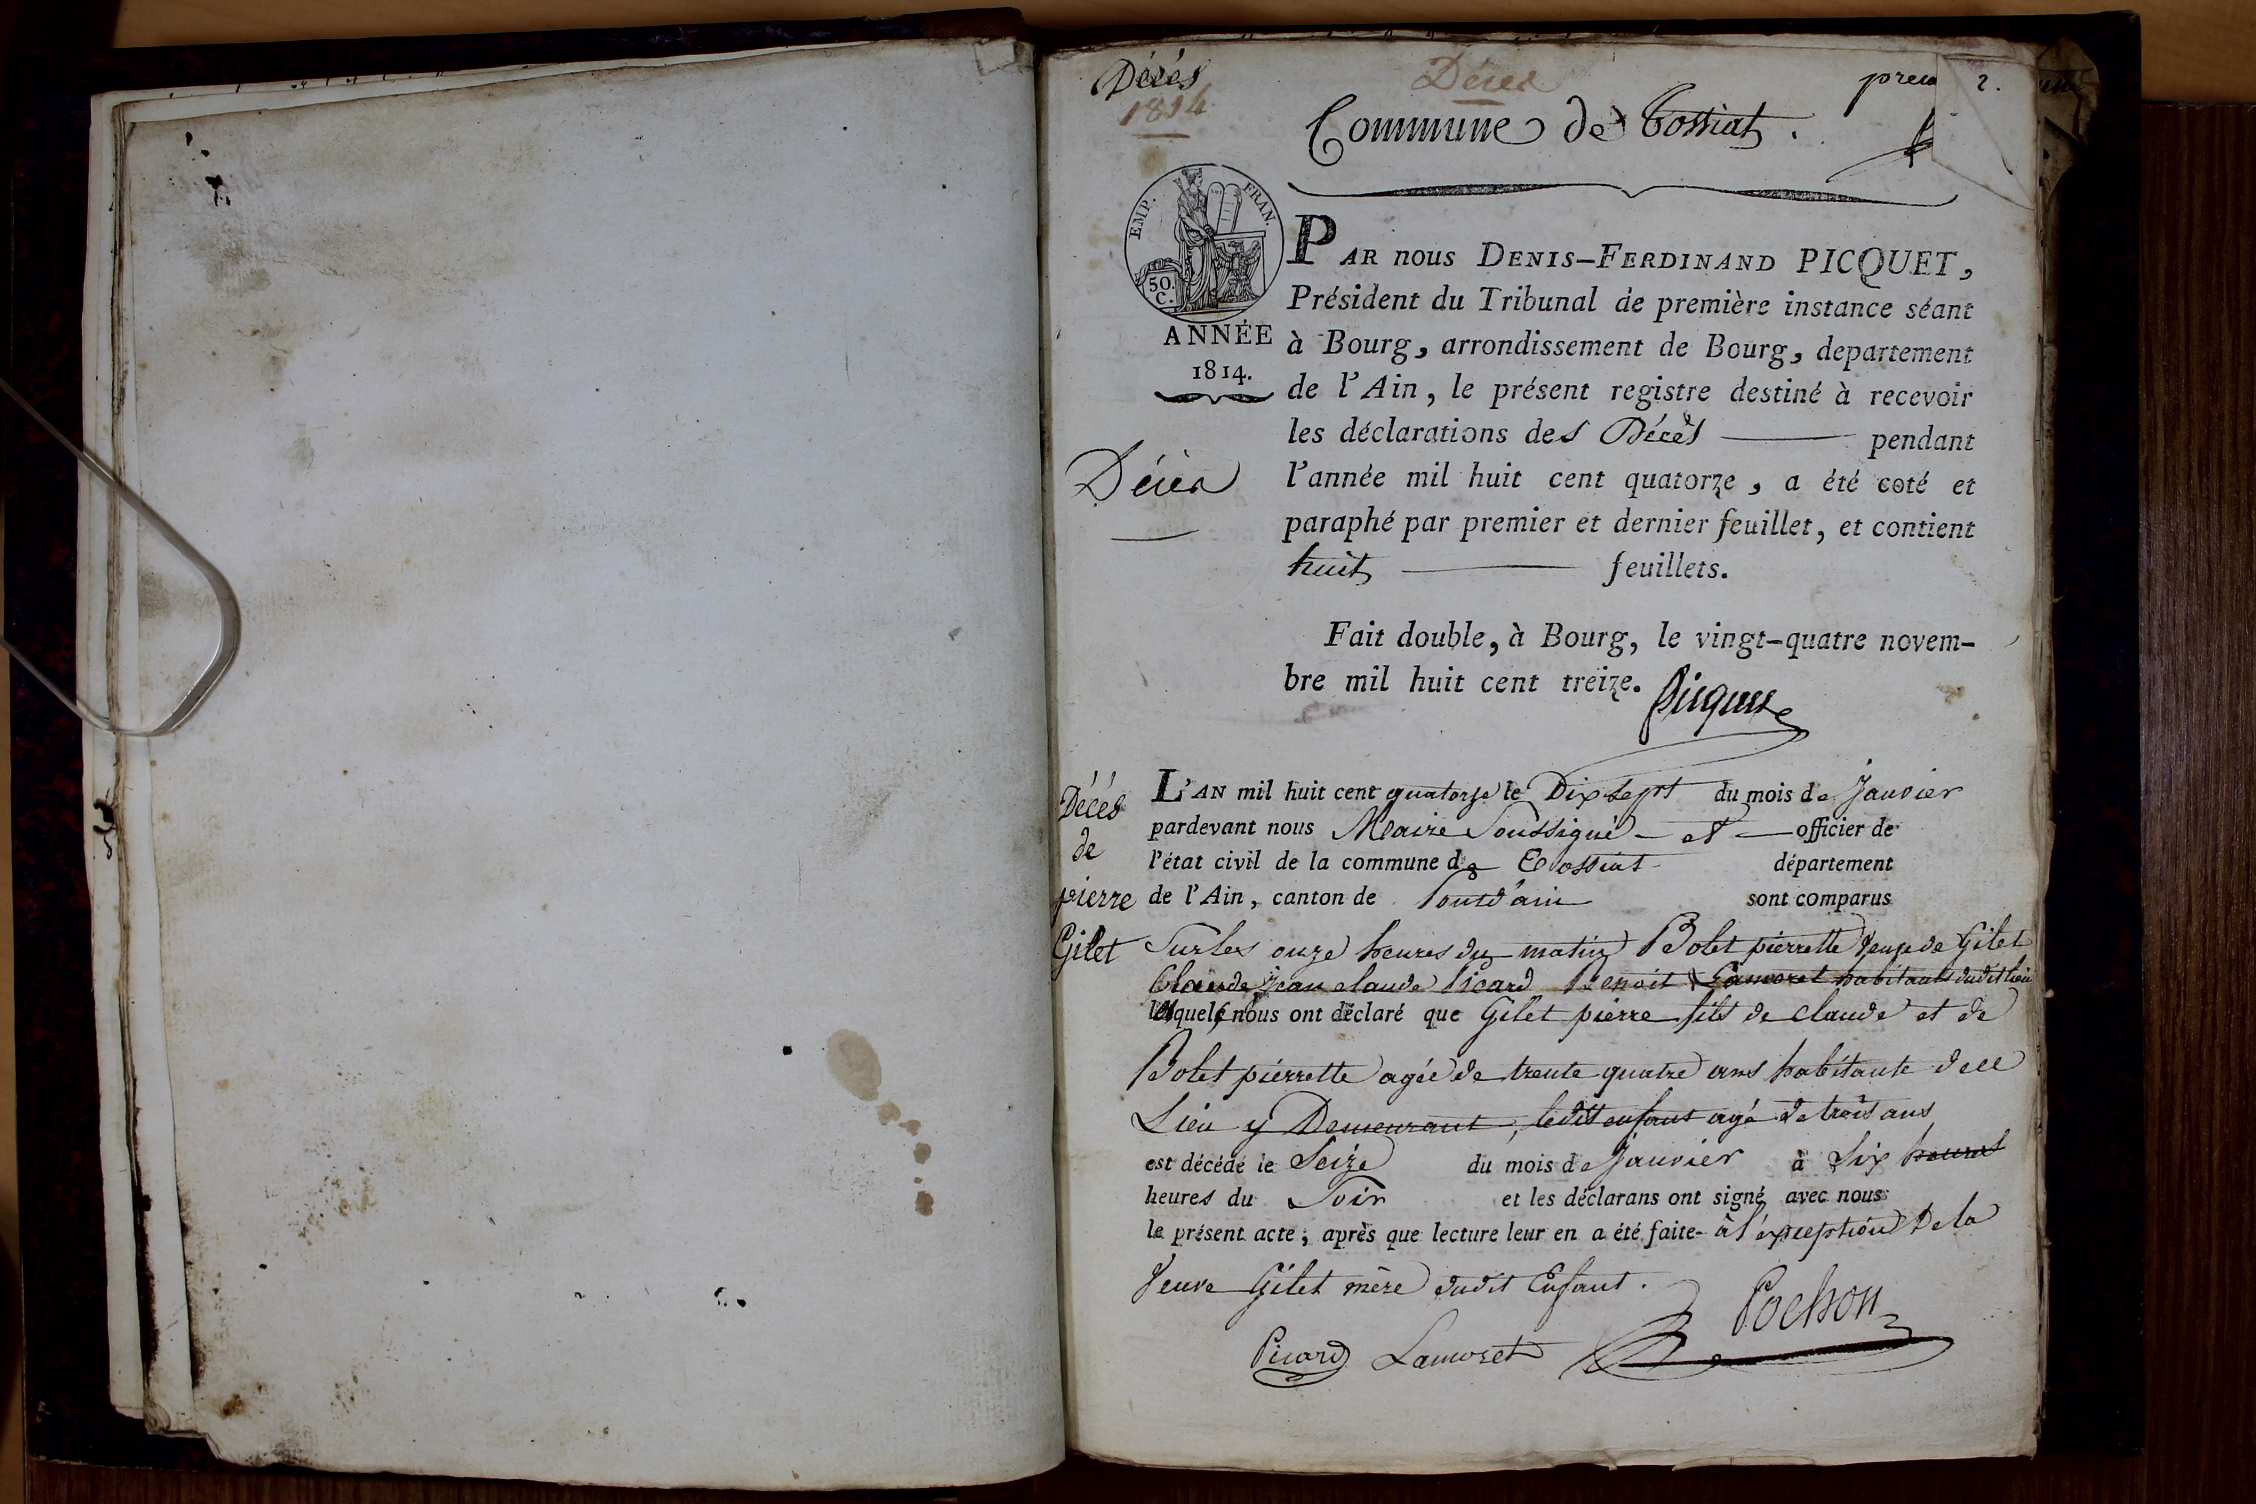 Décès
1814
Décès
2.
Commune de Tossiat.
EMP. FRAN.
50.
C.
ANNÉE
1814.
Décès
PAR nous DENIS-FERDINAND PICQUET,
Président du Tribunal de première instance séant
à Bourg, arrondissement de Bourg, departement
de l'Ain, le présent registre destiné à recevoir
les déclarations des Décès pendant
l'année mil huit cent quatorze, a été coté et
paraphé par premier et dernier feuillet, et contient
huit feuillets.
Fait double, à Bourg, le vingt-quatre novem-
bre mil huit cent treize. Picquet
Décès
de
pierre
Gilet
L'AN mil huit cent quatorze le Dix sept du mois de Janvier
pardevant nous Maire Soussigné et officier de
l'état civil de la commune de Tossiat département
de l'Ain, canton de Pontd'ain sont comparus
Sur les onze heures du matin Bolet pierrette Veuve de Gilet
Claude Jean claude Picard Benoit Lamoret habitants dudit lieu
lesquels nous ont déclaré que Gilet pierre fils de claude et de
Bolet pierrette agée de trente quatre ans habitante de ce
Lieu y Demeurant, ledit enfant agé de trois ans
est décédé le Seize du mois de Janvier à Six heures
heures du Soir et les déclarans ont signé avec nous
le présent acte, après que lecture leur en a été faite - à l'exception De la
Veuve Gilet mère dudit Enfant.
Picard Lamoret Pochon